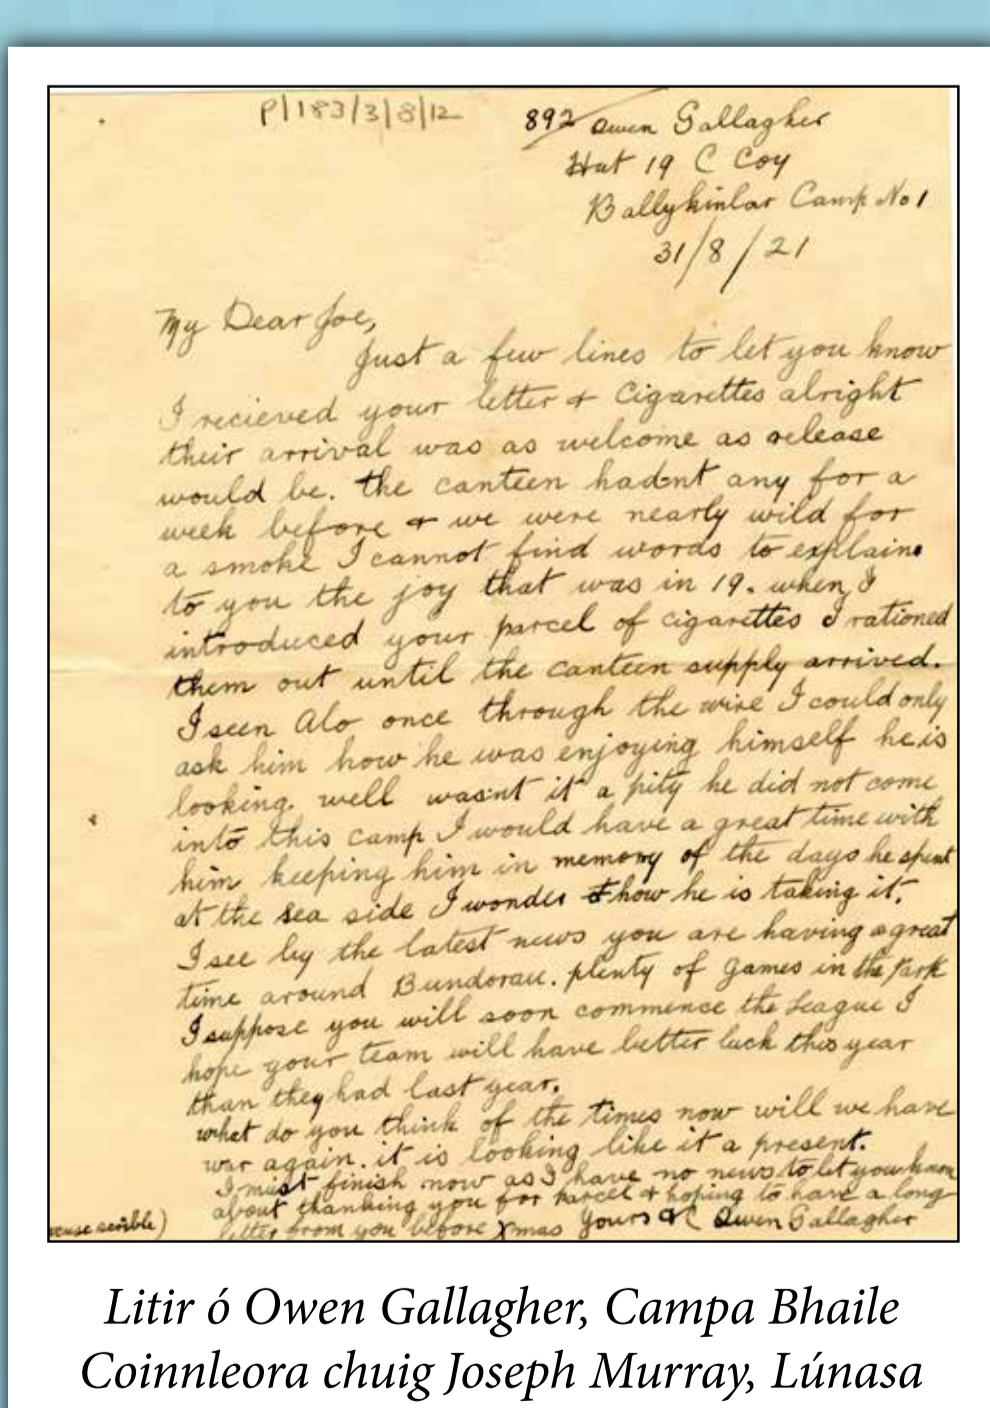 P/183/3/8/12
892 Owen Gallagher
Hut 19 C Coy
Ballykinlar Camp No 1
31/8/21
My Dear Joe,
Just a few lines to let you know
I recieved your letter & Cigarettes alright
their arrival was as welcome as release
would be. the canteen hadnt any for a
week before & we were nearly wild for
a smoke I cannot find words to explain
to you the joy that was in 19. when I
introduced your parcel of cigarettes I rationed
them out until the canteen supply arrived.
I seen Alo once through the wire I could only
ask him how he was enjoying himself he is
looking well wasnt it a pity he did not come
into this camp I would have a great time with
him keeping him in memory of the days he spent
at the sea side I wonder how he is taking it.
I see by the latest news you are having a great
time around Bundoran. plenty of games in the Park
I suppose you will soon commence the League I
hope your team will have better luck this year
than they had last year.
what do you think of the times now will we have
war again. it is looking like it a present.
I must finish now as I have no news to let you know
about thanking you for parcel & hoping to have a long
letter from you before Xmas Yours &C Owen Gallagher
scribble)
Litir ó Owen Gallagher, Campa Bhaile
Coinnleora chuig Joseph Murray, Lúnasa